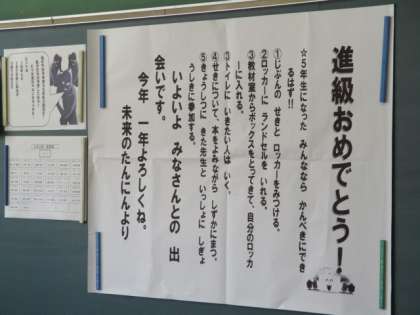 進級おめでとう！
☆５年生になった みんななら かんぺきにでき
るはず!!
①じぶんの せきと ロッカーをみつける。
②ロッカーに ランドセルを いれる。
③教材室からボックスをとってきて、自分のロッカ
ーに入れる。
③トイレに いきたい人は いく。
④せきについて、本をよみながら しずかにまつ。
⑤きょうしつに きた先生と いっしょに しぎょ
うしきに参加する。
いよいよ みなさんとの 出
会いです。
今年 一年よろしくね。
未来のたんにんより